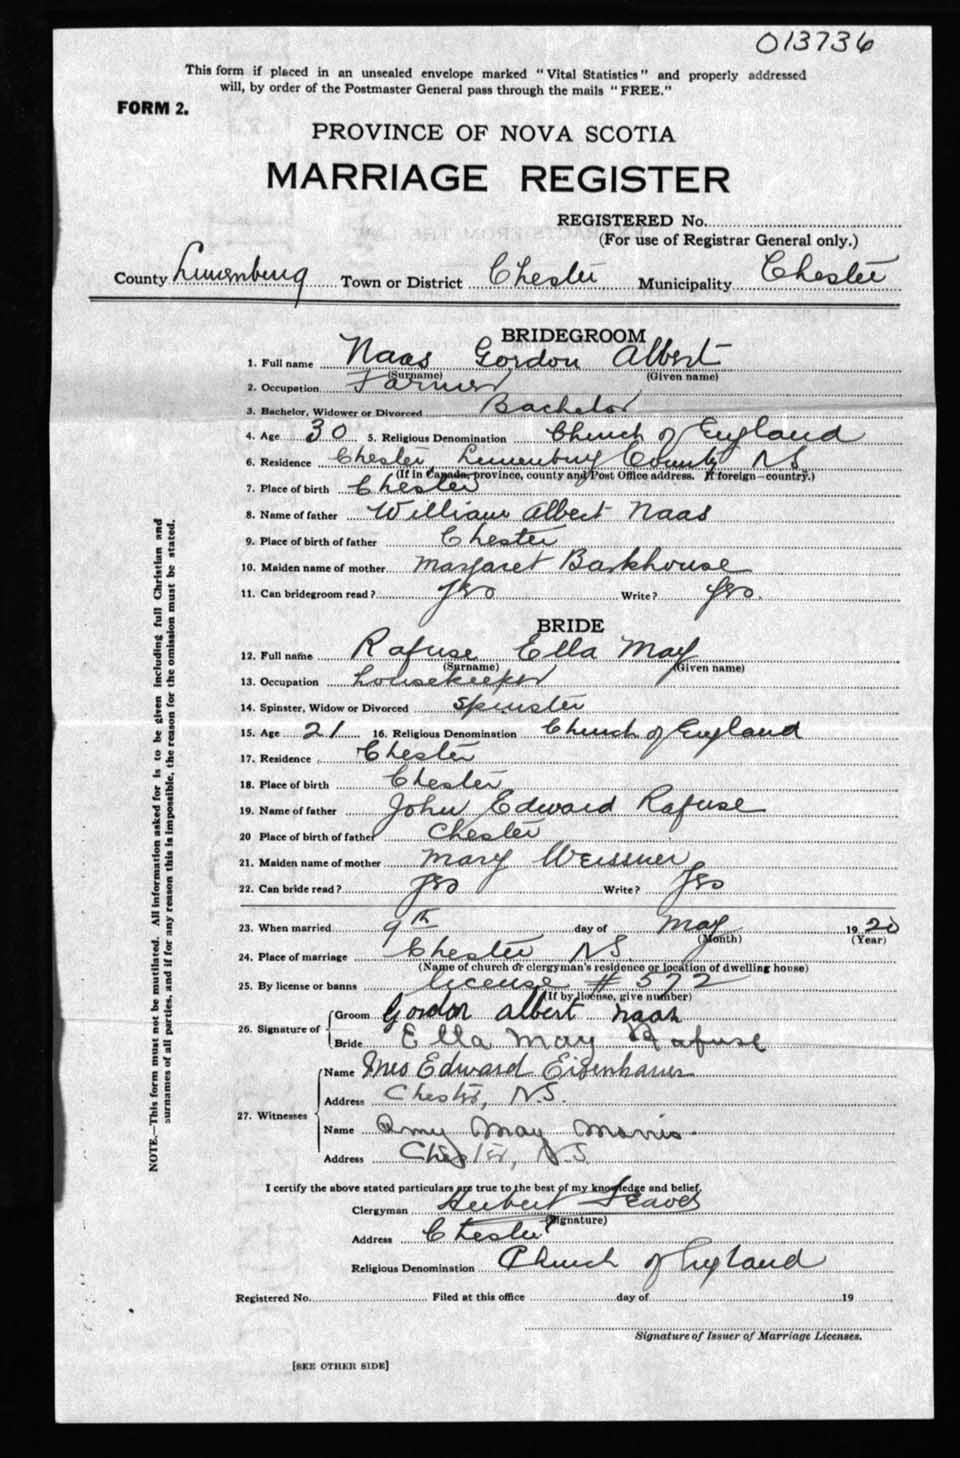 013736
This form if placed in an unsealed envelope marked "Vital Statistics" and properly addressed
will, by order of the Postmaster General pass through the mails "FREE."
FORM 2.
PROVINCE OF NOVA SCOTIA
MARRIAGE REGISTER
REGISTERED No.
(For use of Registrar General only.)
County Lunenburg Town or District Chester Municipality Chester
BRIDEGROOM
1. Full name Naas Gordon Albert
(Surname) (Given name)
2. Occupation Farmer
3. Bachelor, Widower or Divorced Bachelor
4. Age 30 5. Religious Denomination Church of England
6. Residence Chester Lunenburg County N.S.
(If in Canada, province, county and Post Office address. If foreign—country.)
7. Place of birth Chester
8. Name of father William Albert Naas
9. Place of birth of father Chester
10. Maiden name of mother Margaret Barkhouse
11. Can bridegroom read? Yes Write? Yes.
BRIDE
12. Full name Rafuse Ella May
(Surname) (Given name)
13. Occupation housekeeper
14. Spinster, Widow or Divorced Spinster
15. Age 21 16. Religious Denomination Church of England
17. Residence Chester
18. Place of birth Chester
19. Name of father John Edward Rafuse
20 Place of birth of father Chester
21. Maiden name of mother Mary
22. Can bride read? Yes Write? Yes
23. When married 9th day of May 1920
(Month) (Year)
24. Place of marriage Chester N.S.
(Name of church or clergyman's residence or location of dwelling house)
25. By license or banns license # 572
(If by license, give number)
26. Signature of Groom Gordon Albert Naas
Bride Ella May Rafuse
27. Witnesses Name Mrs Edward Eisenhauer
Address Chester, N.S.
Name Amy May Morris
Address Chester, N.S.
I certify the above stated particulars are true to the best of my knowledge and belief.
Clergyman Herbert
(Signature)
Address Chester
Religious Denomination Church of England
Registered No. Filed at this office day of 19
Signature of Issuer of Marriage Licenses.
[SEE OTHER SIDE]
NOTE.—This form must not be mutilated. All information asked for is to be given including full Christian and
surnames of all parties, and if for any reason this is impossible, the reason for the omission must be stated.